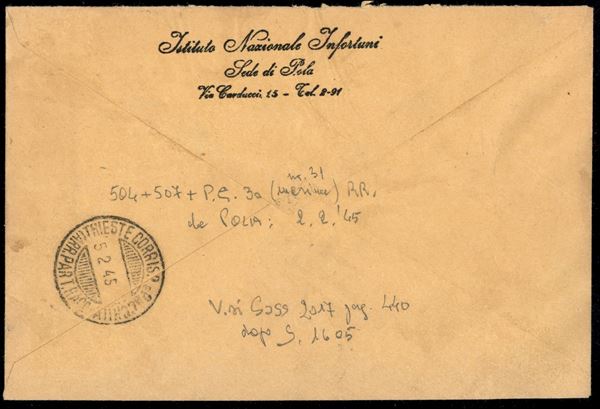 Istituto Nazionale Infortuni
Sede di Pola
Via Carducci, 15 - Tel. 2-91
nr. 31
504 + 507 + P.C. 30 (marina) RR.
da POLA: 2.2.'45
TRIESTE CORRISP.
5 2 45
V.si Sass 2017 pag. 440
dopo S. 1605